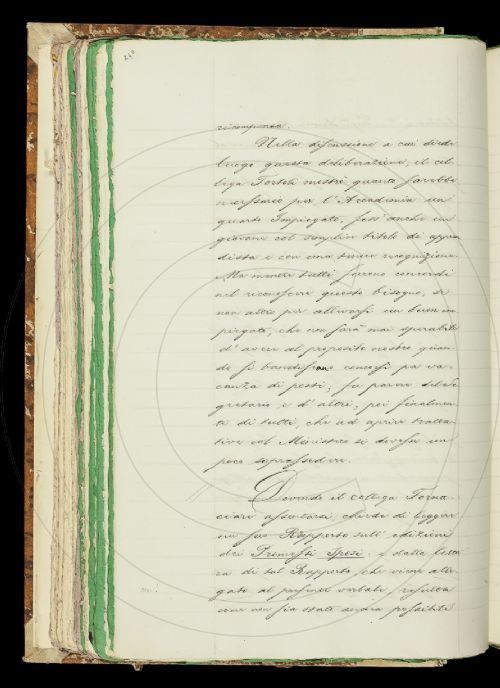 240
ricompensa.
Nella discussione a cui diede
luogo questa deliberazione, il col-
lega Tortoli mostrò quanto sarebbe
necessario per l'Accademia un
quarto Impiegato, foss'anche un
giovane col semplice titolo di appren
dista e con una tenue ricognizione.
Ma mentre tutti furono concordi
nel riconoscere questo bisogno, se
non altro per allevarsi un buon im-
piegato, che non sarà mai sperabile
d'avere al proposito nostro quan-
do si bandissero concorsi per va-
canza di posti; fu parere del Se
gretario e d'altri, poi finalmen-
te di tutti, che ad aprire tratta-
tive col Ministero si dovesse un
poco soprassedere.
Dovendo il collega Forna-
ciari assentarsi, chiede di leggere
un suo Rapporto sull'edizioni
dei Promessi Sposi: e dalla lettu
ra di tal Rapporto che viene alle-
gato al presente verbale, risulta
come non sia stato ancora possibile